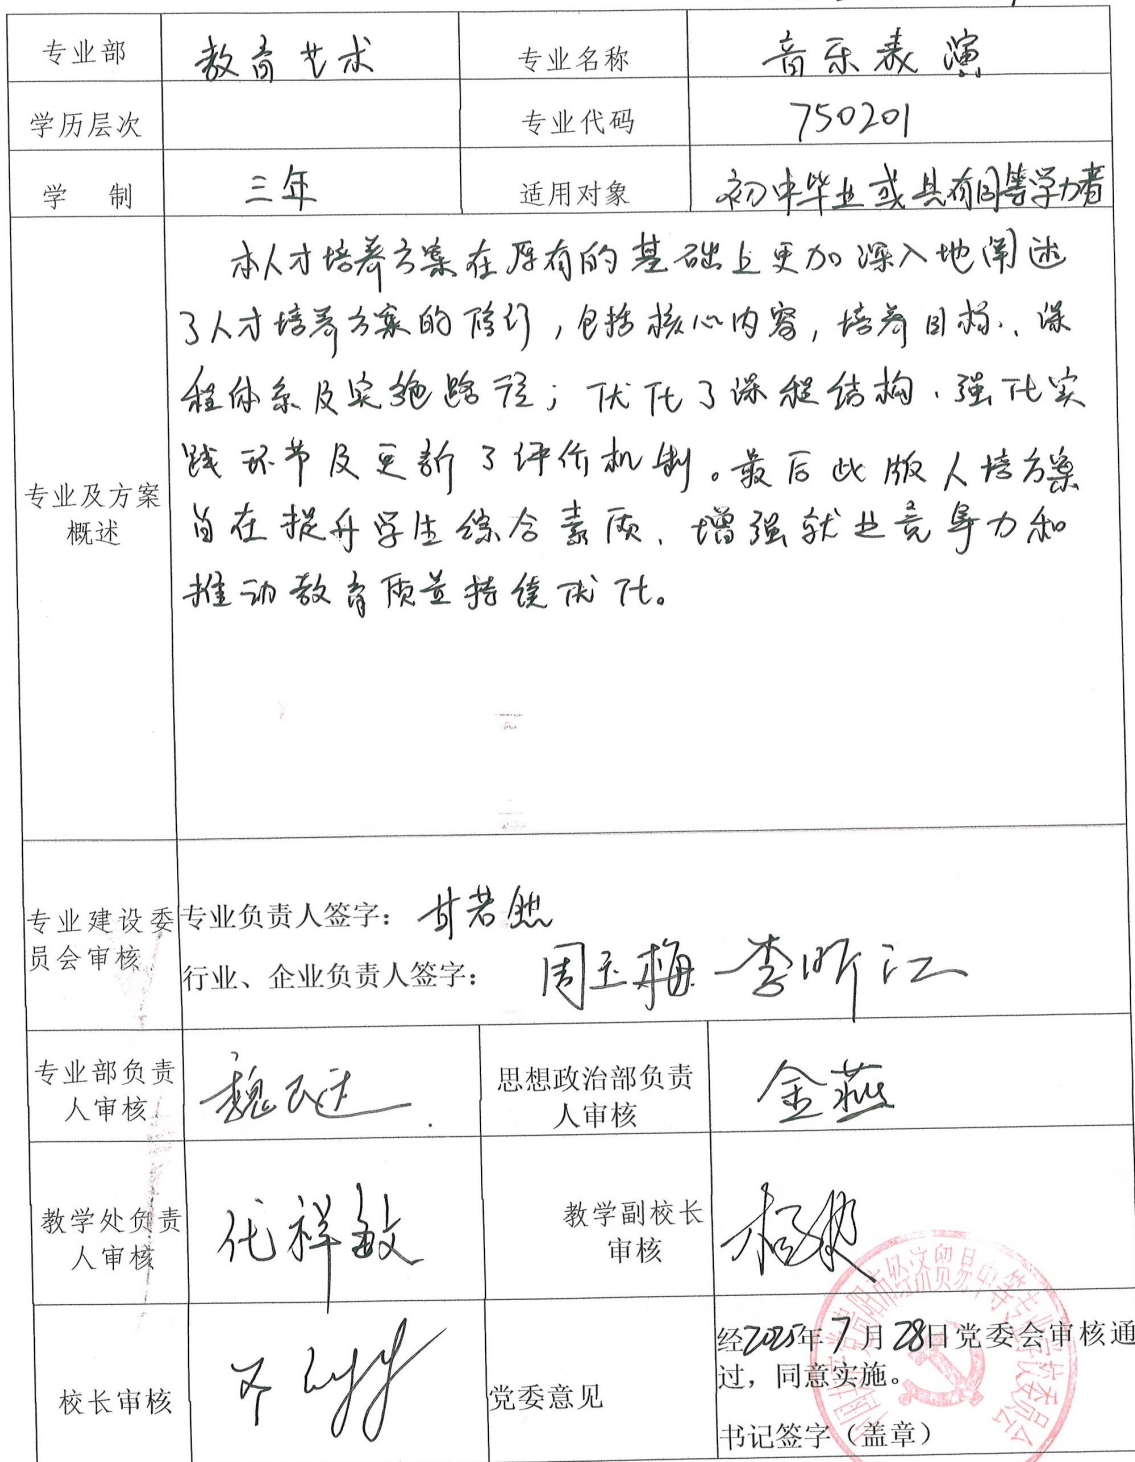 专业部 教育艺术 专业名称 音乐表演
学历层次 专业代码 750201
学 制 三年 适用对象 初中毕业或具有同等学力者
专业及方案概述
本人才培养方案在原有的基础上更加深入地阐述
了人才培养方案的修订，包括核心内容，培养目标、课
程体系及实施路径；优化了课程结构、强化实
践环节及更新了评价机制。最后此版人培方案
旨在提升学生综合素质、增强就业竞争力和
推动教育质量持续优化。
专业建设委
员会审核
专业负责人签字： 甘若然
行业、企业负责人签字： 周玉梅 李昕江
专业部负责
人审核
魏
思想政治部负责
人审核
金燕
教学处负责
人审核
代祥敏
教学副校长
审核
杨
校长审核
党委意见
经2025年7月28日党委会审核通
过，同意实施。
书记签字（盖章）